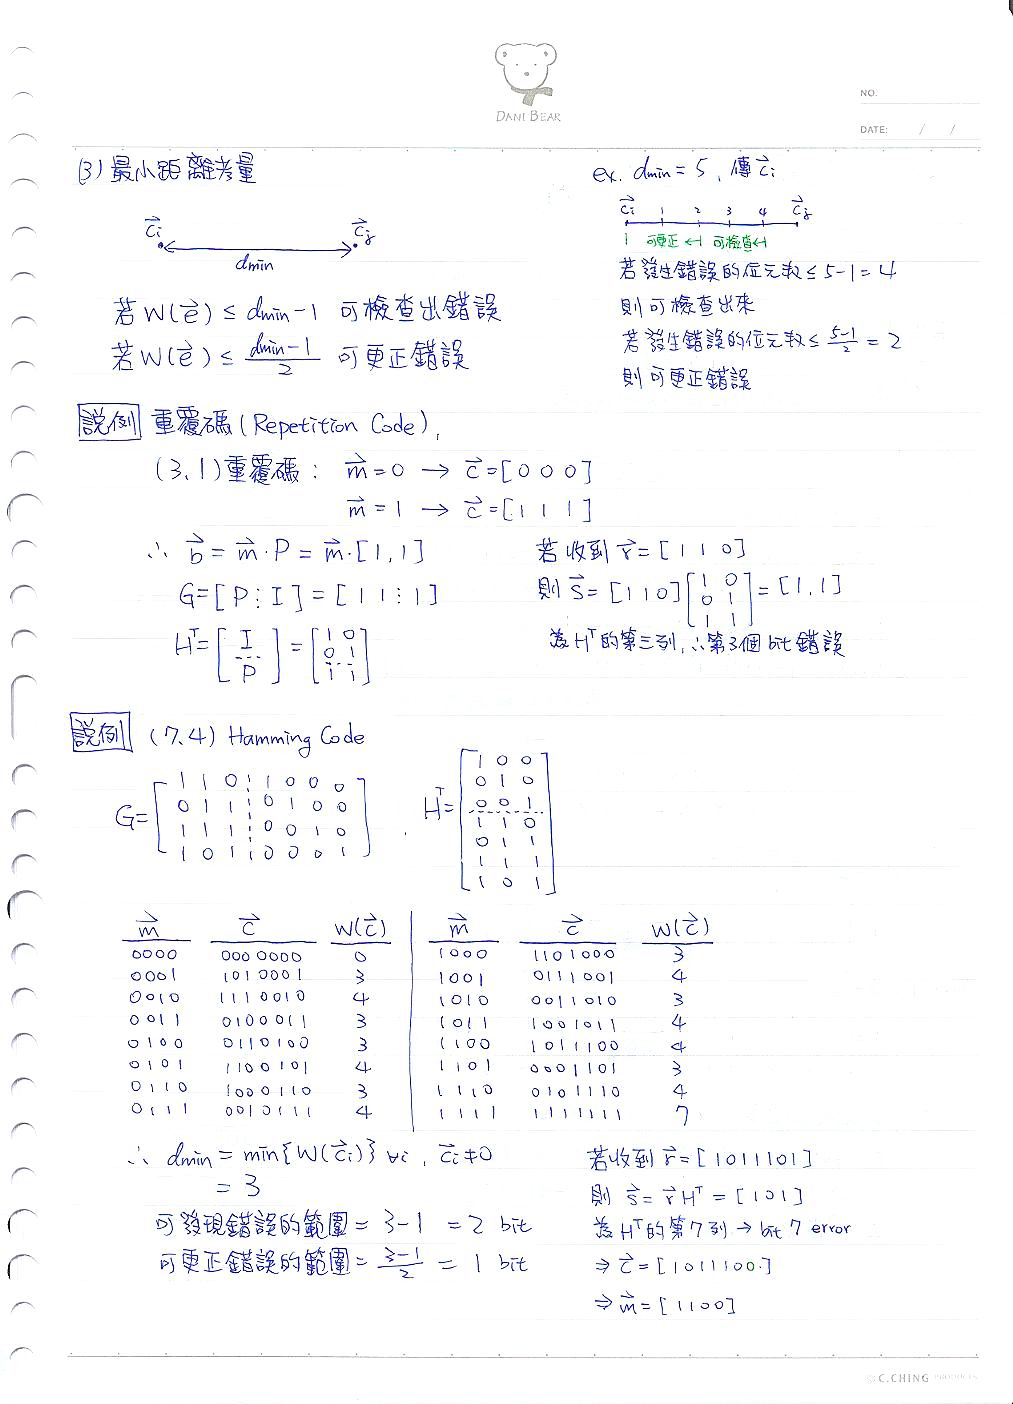 DANI BEAR
NO.
DATE: / /
(3) 最小距離考量
c⃗i c⃗j
dmin
若 W(e⃗) ≤ dmin-1 可檢查出錯誤
若 W(e⃗) ≤ (dmin-1)/2 可更正錯誤
ex. dmin = 5, 傳 c⃗i
c⃗i 1 2 3 4 c⃗j
可更正 可檢查
若發生錯誤的位元數 ≤ 5-1 = 4
則可檢查出來
若發生錯誤的位元數 ≤ (5-1)/2 = 2
則可更正錯誤
説例 重覆碼 (Repetition Code),
(3,1) 重覆碼: m⃗ = 0 → c⃗ = [0 0 0]
m⃗ = 1 → c⃗ = [1 1 1]
∴ b⃗ = m⃗·P = m⃗·[1,1]
G = [P⋮I] = [1 1⋮1]
H^T = [I / P] = [1 0 / 0 1 / 1 1]
若收到 r⃗ = [1 1 0]
則 s⃗ = [1 1 0] [1 0 / 0 1 / 1 1] = [1,1]
為 H^T 的第三列, ∴第3個 bit 錯誤
説例 (7,4) Hamming Code
G = [
1 1 0 ⋮ 1 0 0 0
0 1 1 ⋮ 0 1 0 0
1 1 1 ⋮ 0 0 1 0
1 0 1 ⋮ 0 0 0 1
]
H^T = [
1 0 0
0 1 0
0 0 1
1 1 0
0 1 1
1 1 1
1 0 1
]
m⃗ c⃗ W(c⃗)
0000 0000000 0
0001 1010001 3
0010 1110010 4
0011 0100011 3
0100 0110100 3
0101 1100101 4
0110 1000110 3
0111 0010111 4
m⃗ c⃗ W(c⃗)
1000 1101000 3
1001 0111001 4
1010 0011010 3
1011 1001011 4
1100 1011100 4
1101 0001101 3
1110 0101110 4
1111 1111111 7
∴ dmin = min{W(c⃗i)} ∀i, c⃗i≠0
= 3
可發現錯誤的範圍 = 3-1 = 2 bit
可更正錯誤的範圍 = (3-1)/2 = 1 bit
若收到 r⃗ = [1011101]
則 s⃗ = r⃗ H^T = [101]
為 H^T 的第7列 → bit 7 error
⇒ c⃗ = [1011100]
⇒ m⃗ = [1100]
© C.CHING PRODUCTS